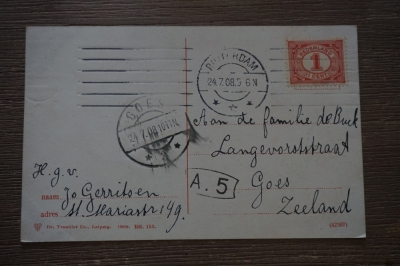 ROTTERDAM
24.7.08.5 6N
NEDERLAND
1
CENT
GOES
24.7.08 10-11K
Aan de familie de Buck
Langevorststraat
Goes
Zeeland
A.5
H.g.v.
naam: Jo Gerritsen
adres: St. Mariastr 149.
Dr. Trenkler Co., Leipzig. 1906.